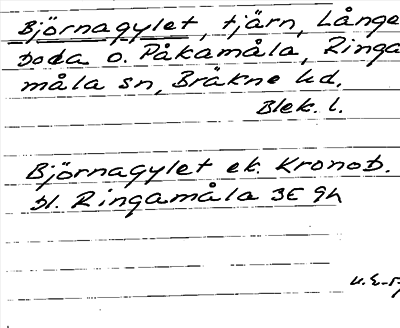 Björnagylet, tjärn, Långa
boda o. Påkamåla, Ringa
måla sn, Bräkne hd.
Blek. l.
Björnagylet ek. Kronob.
bl. Ringamåla 3E 9h